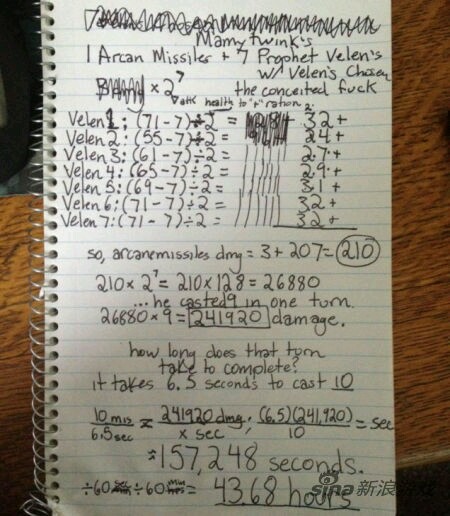 Mamytwink's
1 Arcan Missiles + 7 Prophet Velen's
w/ Velen's Chosen
× 2⁷ the conceited fuck
atk health to "+" ration
Velen 1: (71-7)÷2= 32+
Velen 2: (55-7)÷2= 24+
Velen 3: (61-7)÷2= 27+
Velen 4: (65-7)÷2= 29+
Velen 5: (69-7)÷2= 31+
Velen 6: (71-7)÷2= 32+
Velen 7: (71-7)÷2= 32+
so, arcanemissiles dmg = 3 + 207 = 210
210 × 2⁷ = 210 × 128 = 26880
...he casted 9 in one turn.
26880 × 9 = 241920 damage.
how long does that turn
take to complete?
it takes 6.5 seconds to cast 10
10 mis / 6.5 sec = 241920 dmg / x sec ; (6.5)(241,920) / 10 = sec
≈157,248 seconds.
÷60 ÷60 = 43.68 hours
sina 新浪游戏